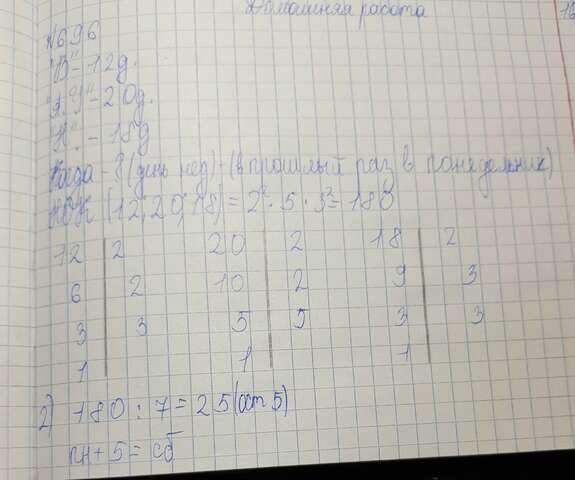 Домашняя работа
16
№696
"В" - 12д.
- 20д.
"Н" - 18д
Когда - ? (день нед) - (в прошлый раз в понедельник)
НОК (12; 20; 18) = 2² · 5 · 3² = 180
12 | 2 20 | 2 18 | 2
6 | 2 10 | 2 9 | 3
3 | 3 5 | 5 3 | 3
1 | 1 | 1 |
2) 180 : 7 = 25 (ост 5)
пн + 5 = сб